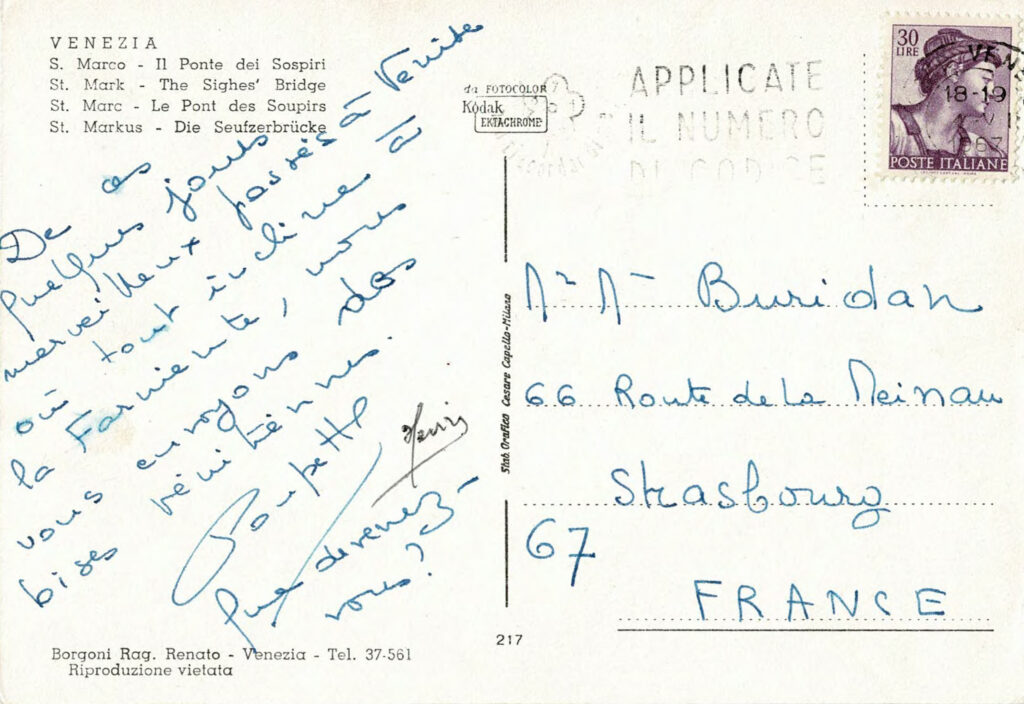 VENEZIA
S. Marco - Il Ponte dei Sospiri
St. Mark - The Sighes' Bridge
St. Marc - Le Pont des Soupirs
St. Markus - Die Seufzerbrücke
De ces
quelques jours
merveilleux passés à Venise
où tout incline à
la Farniente, nous
vous envoyons des
bises vénitiennes.
Henri
Que devenez-
vous?
Borgoni Rag. Renato - Venezia - Tel. 37-561
Riproduzione vietata
da FOTOCOLOR
Kodak
EKTACHROME
Stab. Grafico Cesare Capello-Milano
217
APPLICATE
IL NUMERO
DI CODICE
30
LIRE
POSTE ITALIANE
18-19
Buridan
66 Route de la Meinau
Strasbourg
67
FRANCE